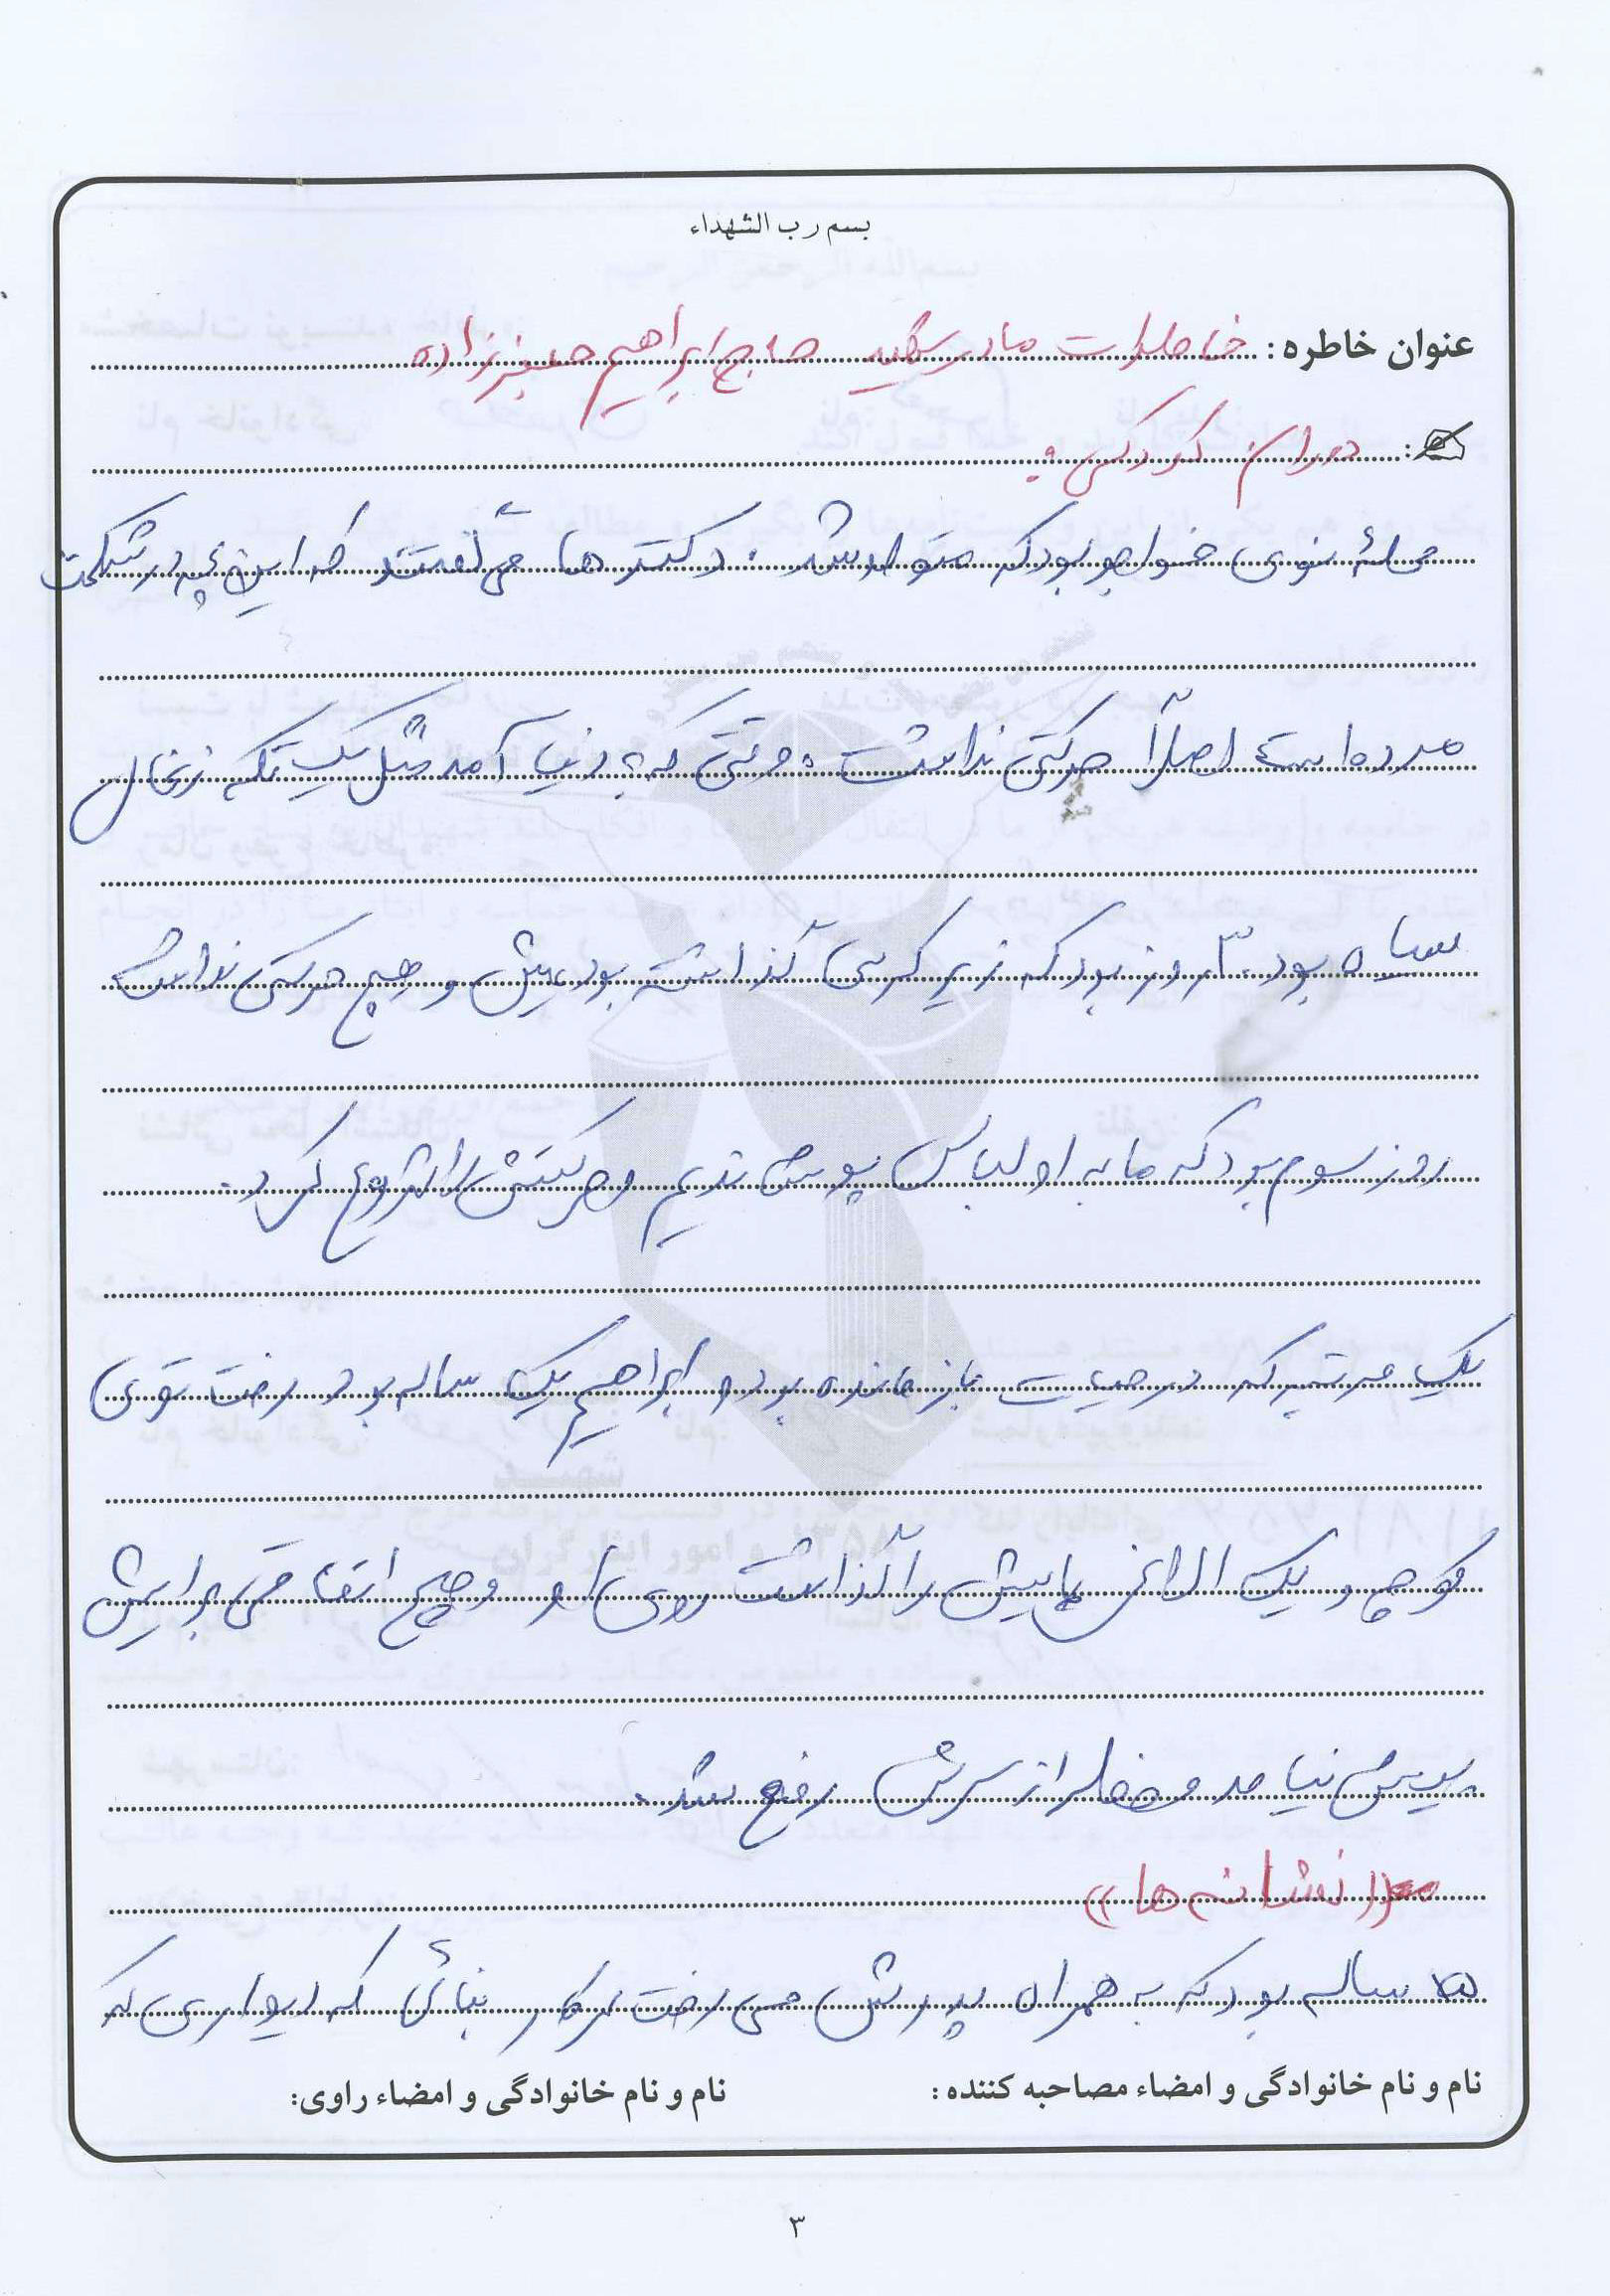 بسم رب الشهداء
عنوان خاطره: خاطرات مادر شهید حاج ابراهیم جعفرزاده
دوران کودکی:
محلهٔ نوی خواجو بود که متولد شد. دکترها می گفتند که این بچه در شکمت
مرده است اصلاً حرکتی نداشت. وقتی که به دنیا آمد مثل یک تکه زغال
سیاه بود. ۳ روز بود که زیر کرسی گذاشته بودیمش و هیچ حرکتی نداشت
روز سوم بود که ما به او لباس پوشاندیم و حرکتش را شروع کرد.
یک مرتبه که در حیاط باز مانده بود و ابراهیم یک ساله بود رفت توی
کوچه و یک الاغی پایش را گذاشت روی او و هیچ اتفاقی برایش
پیش نیامد و خطر از سرش رفع شد.
((نشانه ها))
۵ ساله بود که به همراه پدرش می رفت سر کار بنائی که دیواری که
نام و نام خانوادگی و امضاء مصاحبه کننده: نام و نام خانوادگی و امضاء راوی:
۳